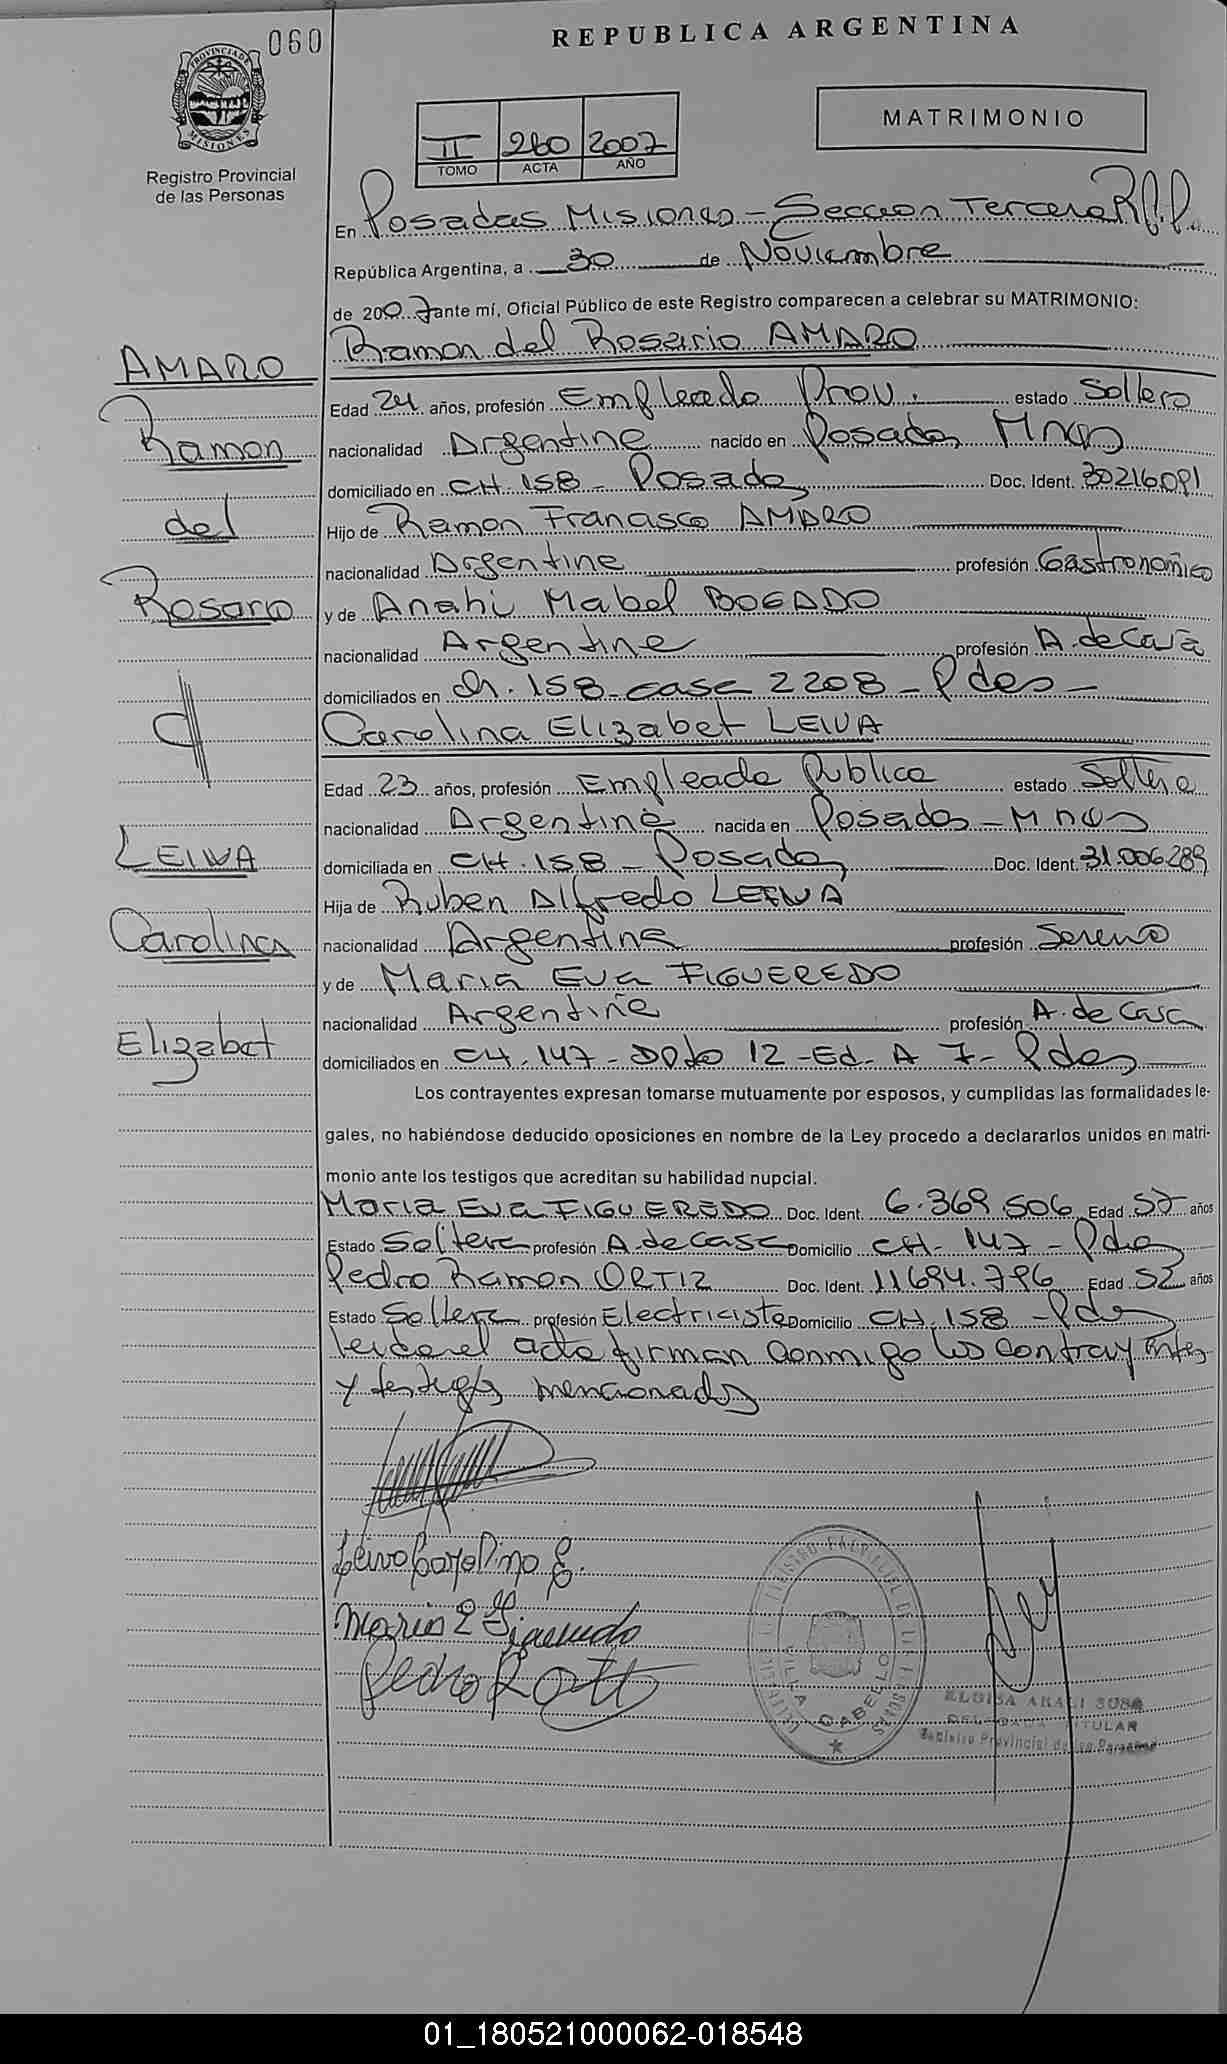 060
REPUBLICA ARGENTINA
PROVINCIA DE MISIONES
Registro Provincial
de las Personas
II 260 2007
TOMO ACTA AÑO
MATRIMONIO
En Posadas Misiones - Seccion Tercera R.P.P.
República Argentina, a 30 de Noviembre
de 2007 ante mí, Oficial Público de este Registro comparecen a celebrar su MATRIMONIO:
Ramon del Rosario AMARO
AMARO
Ramon
del
Rosario
c/
LEIVA
Carolina
Elizabet
Edad 24 años, profesión Empleado Prov. estado Soltero
nacionalidad Argentine nacido en Posadas Mnes
domiciliado en CH. 158 - Posadas Doc. Ident. 30216091
Hijo de Ramon Francisco AMARO
nacionalidad Argentine profesión Gastronomico
y de Anahi Mabel BOGADO
nacionalidad Argentine profesión A. de Casa
domiciliados en Ch. 158 - casa 2208 - Pdas -
Carolina Elizabet LEIVA
Edad 23 años, profesión Empleada Publica estado Soltera
nacionalidad Argentine nacida en Posadas - Mnes
domiciliada en CH. 158 - Posadas Doc. Ident. 31.006.289
Hija de Ruben Alfredo LEIVA
nacionalidad Argentina profesión Sereno
y de Maria Eva FIGUEREDO
nacionalidad Argentine profesión A. de Casa
domiciliados en CH. 147 - Dpto 12 - Ed. A 7 - Pdas
Los contrayentes expresan tomarse mutuamente por esposos, y cumplidas las formalidades le-
gales, no habiéndose deducido oposiciones en nombre de la Ley procedo a declararlos unidos en matri-
monio ante los testigos que acreditan su habilidad nupcial.
Maria Eva FIGUEREDO Doc. Ident. 6.369.506 Edad 57 años
Estado Soltera profesión A. de Casa Domicilio CH. 147 - Pdas
Pedro Ramon ORTIZ Doc. Ident. 11694.796 Edad 52 años
Estado Soltero profesión Electricista Domicilio CH. 158 - Pdas
leida el acta firman conmigo los contrayentes
y testigos mencionados
Leiva Carolina E.
Maria E Figueredo
Pedro R Ortiz
REGISTRO PROVINCIAL DE LAS PERSONAS
VILLA CABELLO
ELOISA ARALI SOSA
DELEGADA TITULAR
Registro Provincial de las Personas
01_180521000062-018548